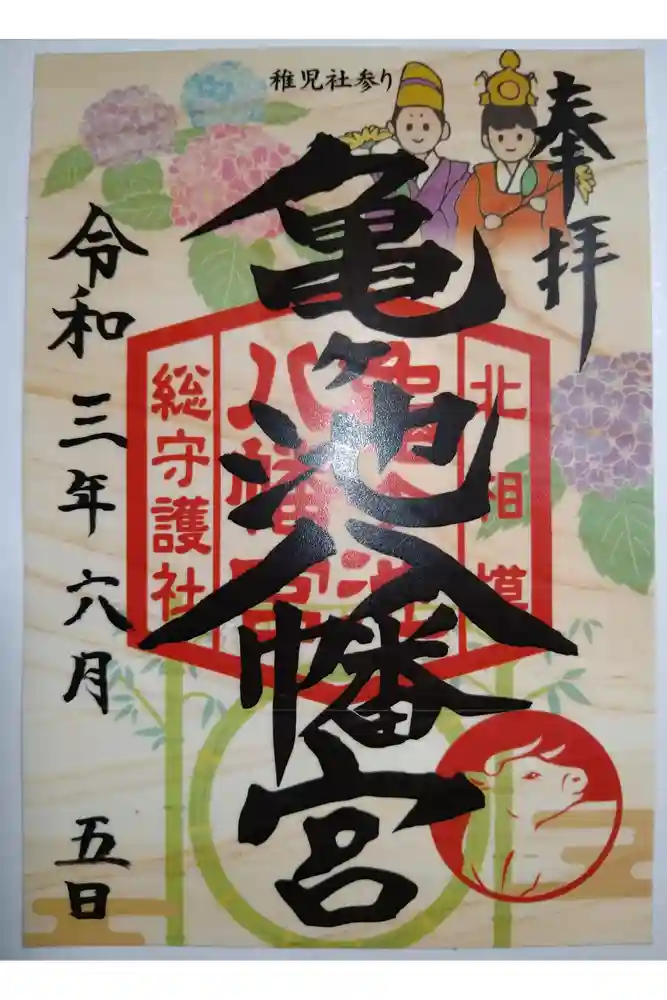 稚児社参り
奉拝
北相模
亀ヶ池
八幡宮
総守護社
亀ヶ池八幡宮
令和三年六月五日